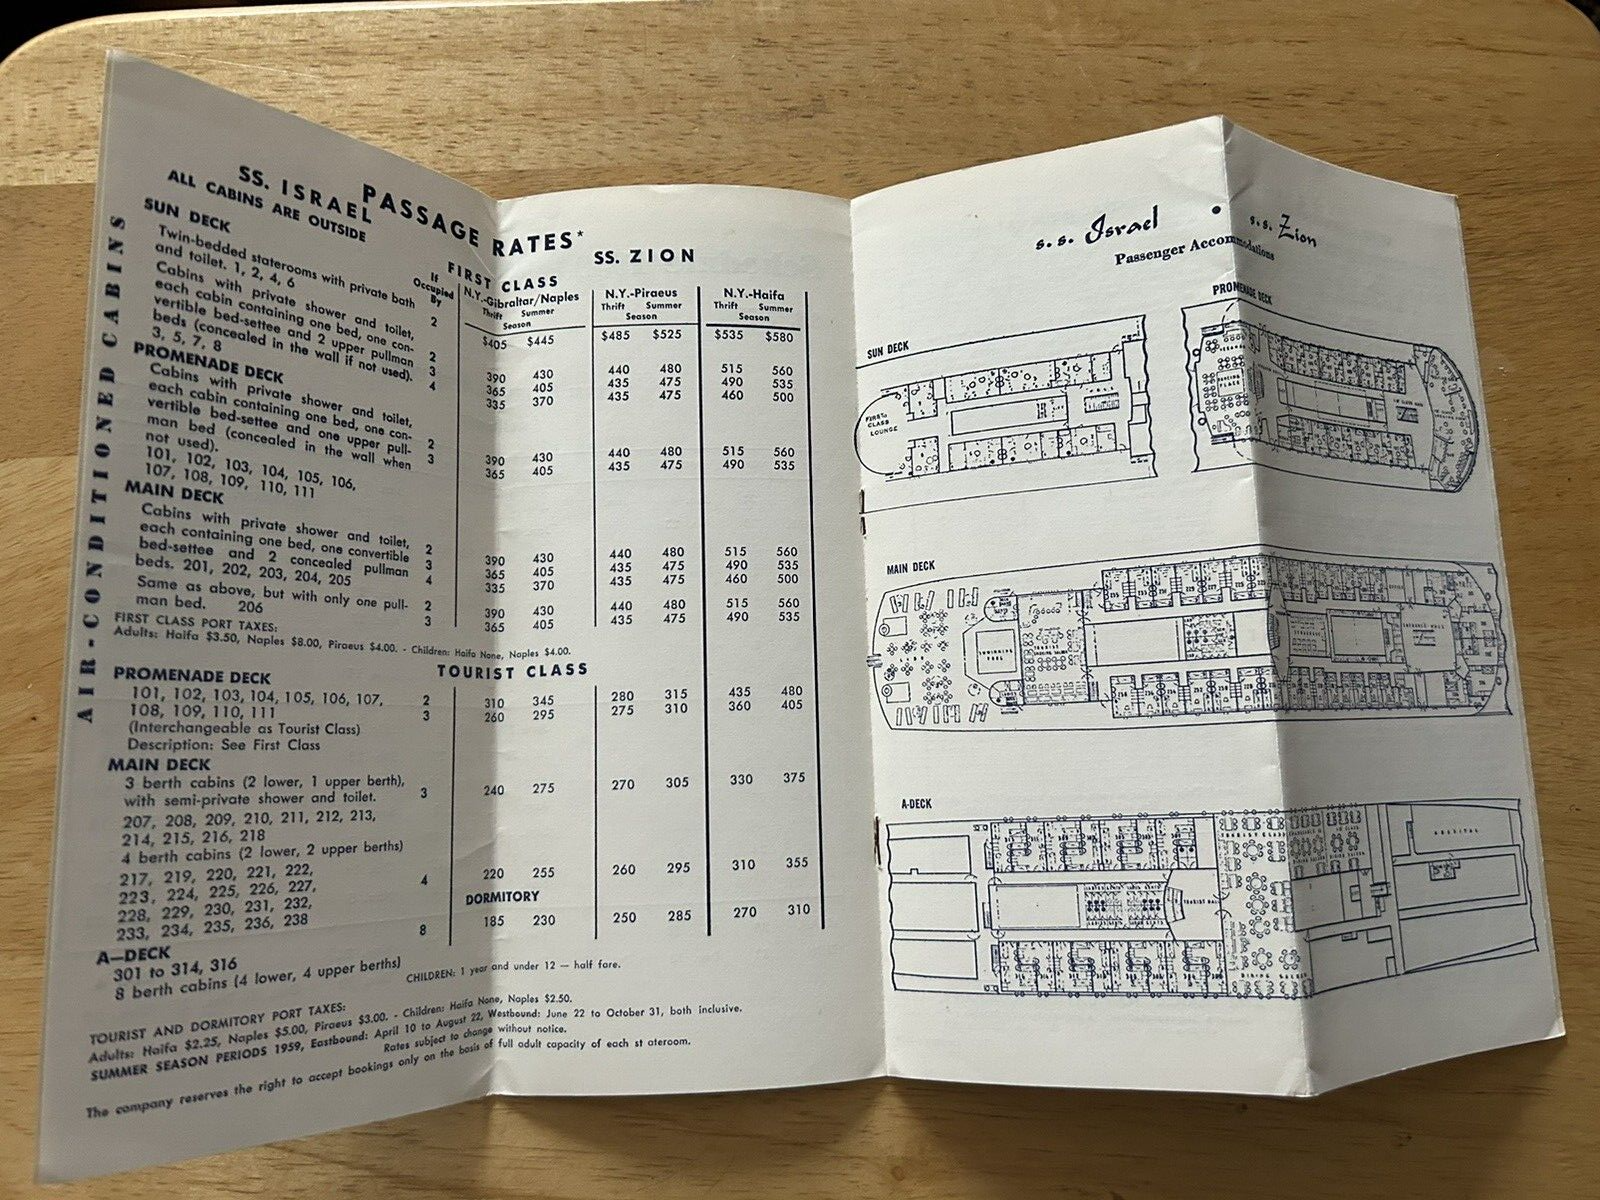 PASSAGE RATES*
SS. ISRAEL SS. ZION
ALL CABINS ARE OUTSIDE
AIR-CONDITIONED CABINS
FIRST CLASS
If Occupied By
N.Y.-Gibraltar/Naples N.Y.-Piraeus N.Y.-Haifa
Thrift Summer Thrift Summer Thrift Summer
Season Season Season
SUN DECK
Twin-bedded staterooms with private bath
and toilet. 1, 2, 4, 6 2 $405 $445 $485 $525 $535 $580
Cabins with private shower and toilet,
each cabin containing one bed, one con-
vertible bed-settee and 2 upper pullman 2 390 430 440 480 515 560
beds (concealed in the wall if not used). 3 365 405 435 475 490 535
3, 5, 7, 8 4 335 370 435 475 460 500
PROMENADE DECK
Cabins with private shower and toilet,
each cabin containing one bed, one con-
vertible bed-settee and one upper pull- 2 390 430 440 480 515 560
man bed (concealed in the wall when 3 365 405 435 475 490 535
not used).
101, 102, 103, 104, 105, 106,
107, 108, 109, 110, 111
MAIN DECK
Cabins with private shower and toilet,
each containing one bed, one convertible 2 390 430 440 480 515 560
bed-settee and 2 concealed pullman 3 365 405 435 475 490 535
beds. 201, 202, 203, 204, 205 4 335 370 435 475 460 500
Same as above, but with only one pull- 2 390 430 440 480 515 560
man bed. 206 3 365 405 435 475 490 535
FIRST CLASS PORT TAXES:
Adults: Haifa $3.50, Naples $8.00, Piraeus $4.00. - Children: Haifa None, Naples $4.00.
TOURIST CLASS
PROMENADE DECK
101, 102, 103, 104, 105, 106, 107, 2 310 345 280 315 435 480
108, 109, 110, 111 3 260 295 275 310 360 405
(Interchangeable as Tourist Class)
Description: See First Class
MAIN DECK
3 berth cabins (2 lower, 1 upper berth),
with semi-private shower and toilet. 3 240 275 270 305 330 375
207, 208, 209, 210, 211, 212, 213,
214, 215, 216, 218
4 berth cabins (2 lower, 2 upper berths)
217, 219, 220, 221, 222, 4 220 255 260 295 310 355
223, 224, 225, 226, 227,
228, 229, 230, 231, 232,
233, 234, 235, 236, 238
DORMITORY
8 185 230 250 285 270 310
A—DECK
301 to 314, 316
8 berth cabins (4 lower, 4 upper berths)
CHILDREN: 1 year and under 12 — half fare.
TOURIST AND DORMITORY PORT TAXES:
Adults: Haifa $2.25, Naples $5.00, Piraeus $3.00. - Children: Haifa None, Naples $2.50.
SUMMER SEASON PERIODS 1959, Eastbound: April 10 to August 22, Westbound: June 22 to October 31, both inclusive.
Rates subject to change without notice.
The company reserves the right to accept bookings only on the basis of full adult capacity of each st ateroom.
s. s. Israel • s. s. Zion
Passenger Accommodations
SUN DECK
FIRST CLASS LOUNGE
PROMENADE DECK
DANCING PLACE
MAIN DECK
SWIMMING POOL
ENTRANCE HALL
A-DECK
TOURIST HALL
HOSPITAL